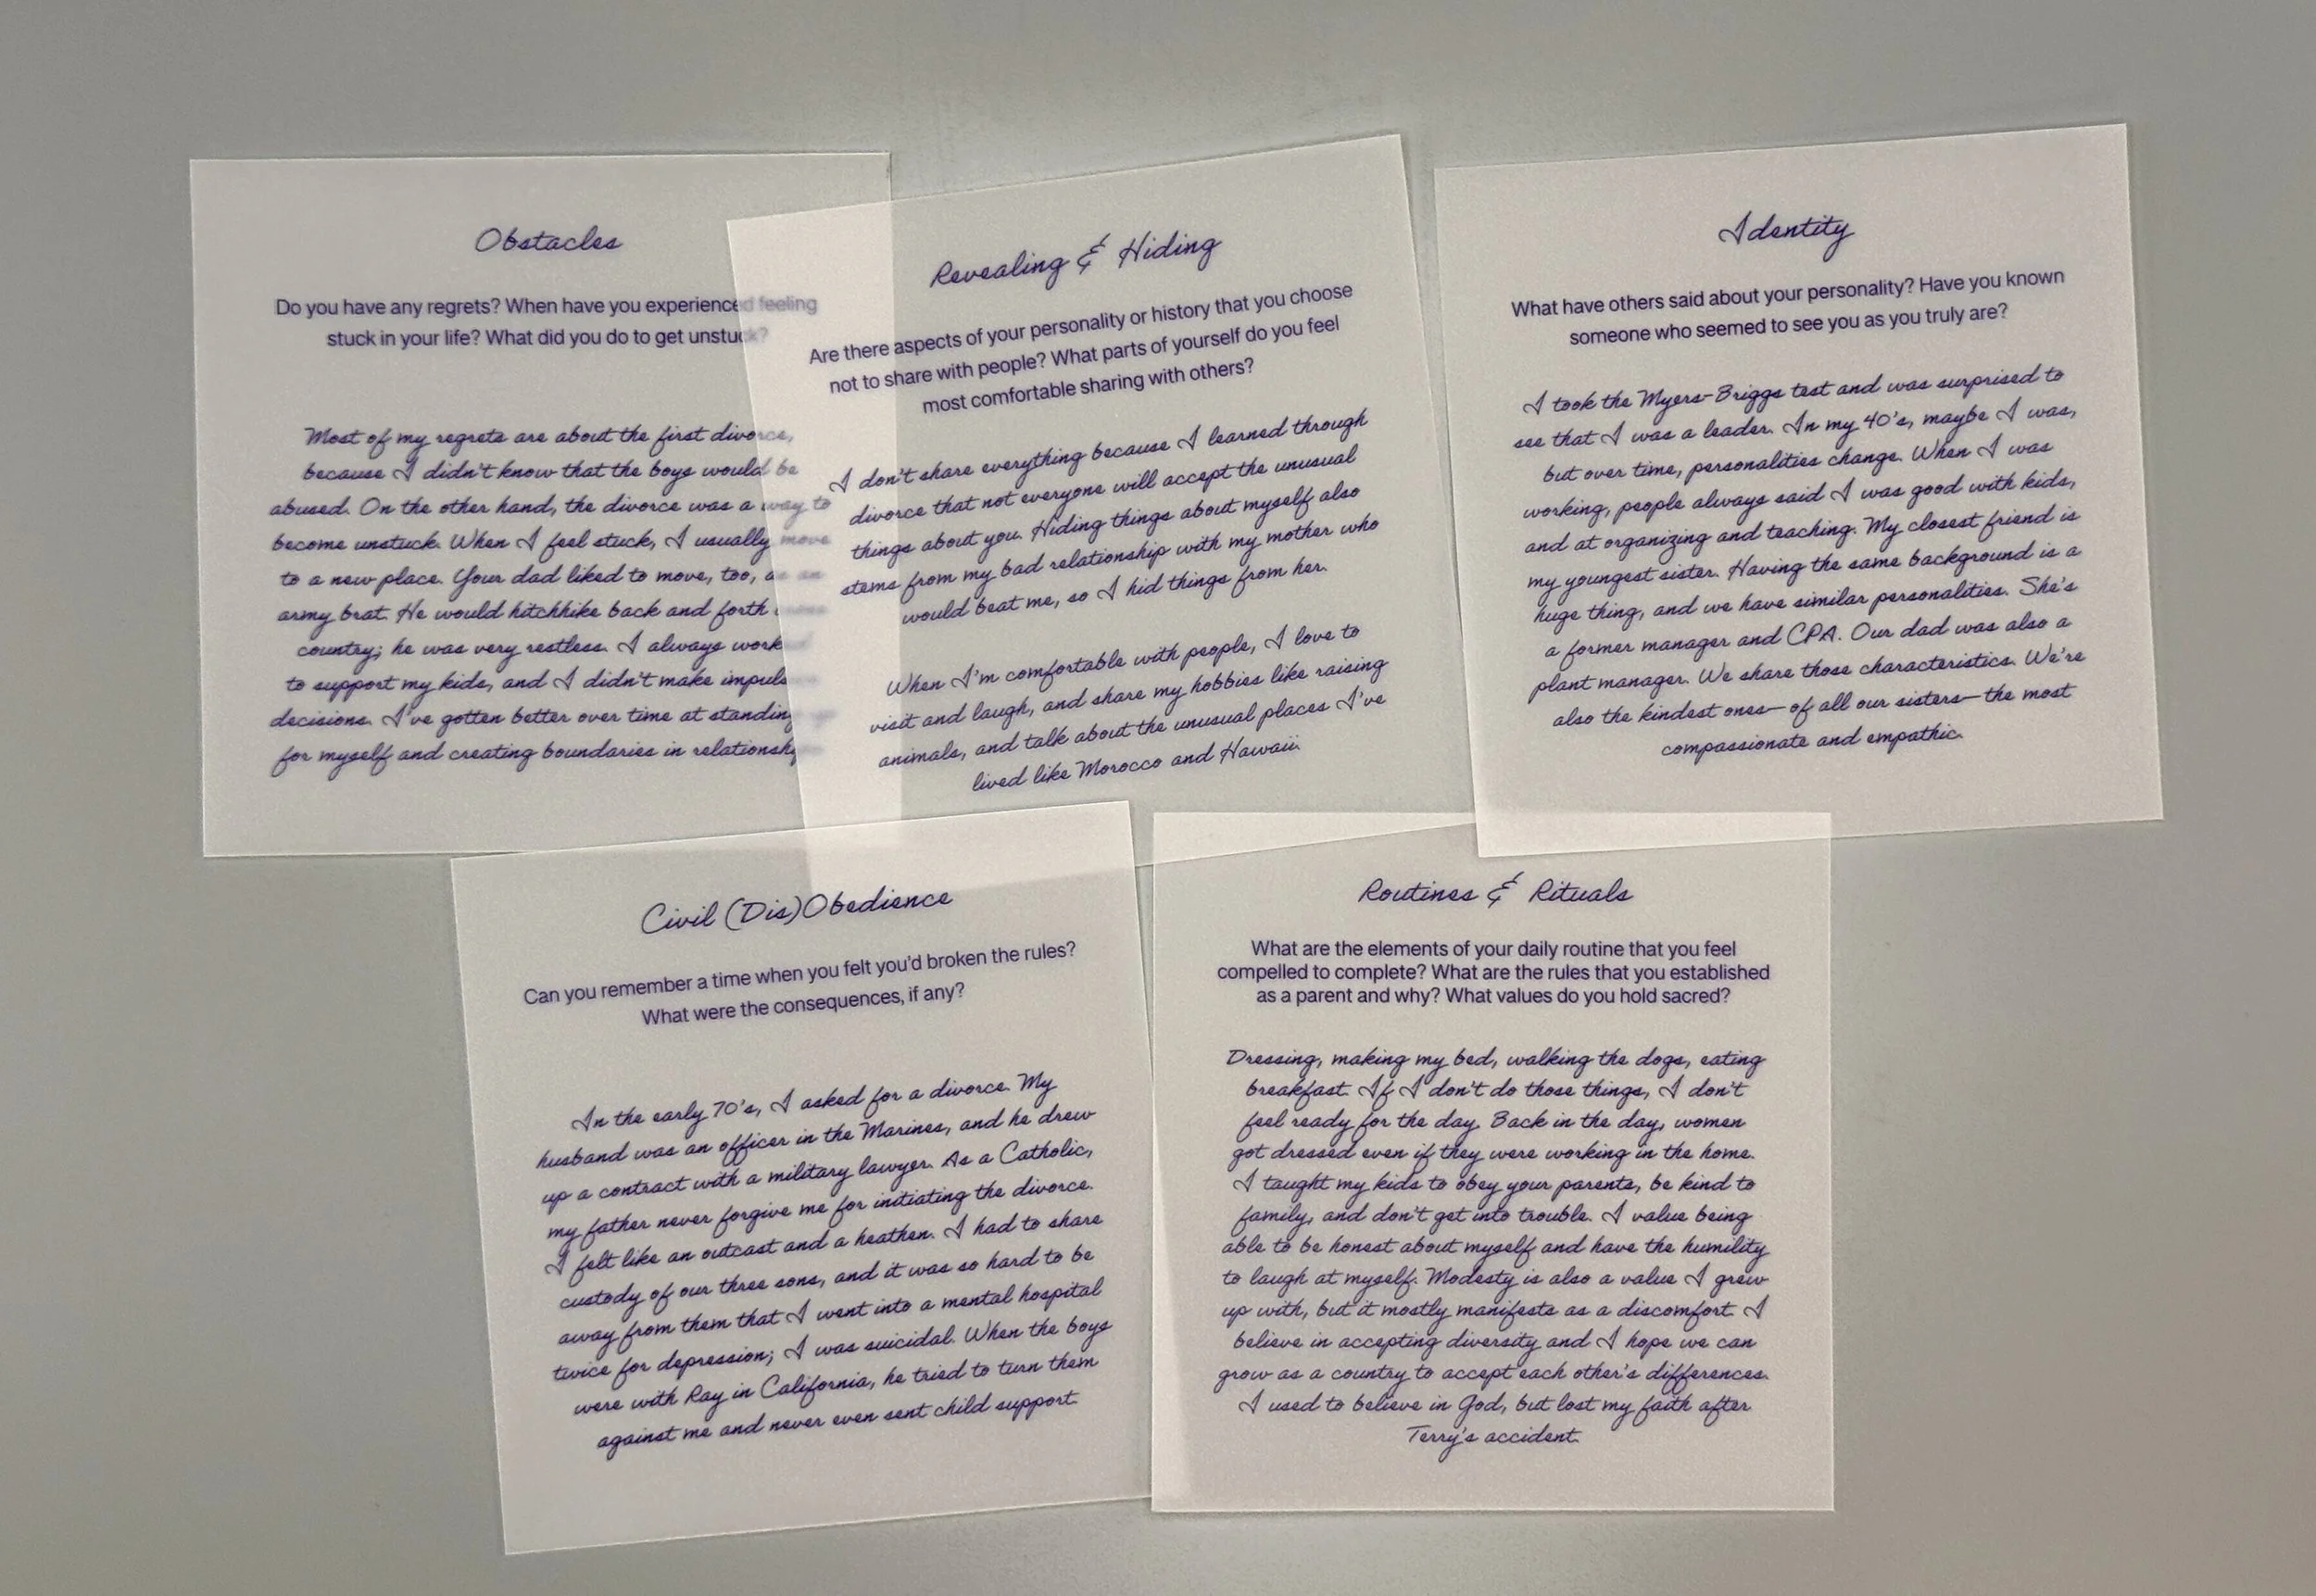 Obstacles
Do you have any regrets? When have you experienced feeling
stuck in your life? What did you do to get unstuck?
Most of my regrets are about the first divorce,
because I didn't know that the boys would be
abused. On the other hand, the divorce was a way to
become unstuck. When I feel stuck, I usually move
to a new place. Your dad liked to move, too, as an
army brat. He would hitchhike back and forth
country; he was very restless. I always worked
to support my kids, and I didn't make
decisions. I've gotten better over time at standing
for myself and creating boundaries in
Revealing & Hiding
Are there aspects of your personality or history that you choose
not to share with people? What parts of yourself do you feel
most comfortable sharing with others?
I don't share everything because I learned through
divorce that not everyone will accept the unusual
things about you. Hiding things about myself also
stems from my bad relationship with my mother who
would beat me, so I hid things from her.
When I'm comfortable with people, I love to
visit and laugh, and share my hobbies like raising
animals, and talk about the unusual places I've
lived like Morocco and Hawaii.
Identity
What have others said about your personality? Have you known
someone who seemed to see you as you truly are?
I took the Myers-Briggs test and was surprised to
see that I was a leader. In my 40's, maybe I was,
but over time, personalities change. When I was
working, people always said I was good with kids,
and at organizing and teaching. My closest friend is
my youngest sister. Having the same background is a
huge thing, and we have similar personalities. She's
a former manager and CPA. Our dad was also a
plant manager. We share those characteristics. We're
also the kindest ones—of all our sisters—the most
compassionate and empathic.
Civil (Dis)Obedience
Can you remember a time when you felt you'd broken the rules?
What were the consequences, if any?
In the early 70's, I asked for a divorce. My
husband was an officer in the Marines, and he drew
up a contract with a military lawyer. As a Catholic,
my father never forgive me for initiating the divorce.
I felt like an outcast and a heathen. I had to share
custody of our three sons, and it was so hard to be
away from them that I went into a mental hospital
twice for depression; I was suicidal. When the boys
were with Ray in California, he tried to turn them
against me and never even sent child support.
Routines & Rituals
What are the elements of your daily routine that you feel
compelled to complete? What are the rules that you established
as a parent and why? What values do you hold sacred?
Dressing, making my bed, walking the dogs, eating
breakfast. If I don't do those things, I don't
feel ready for the day. Back in the day, women
got dressed even if they were working in the home.
I taught my kids to obey your parents, be kind to
family, and don't get into trouble. I value being
able to be honest about myself and have the humility
to laugh at myself. Modesty is also a value I grew
up with, but it mostly manifests as a discomfort. I
believe in accepting diversity and I hope we can
grow as a country to accept each other's differences.
I used to believe in God, but lost my faith after
Terry's accident.